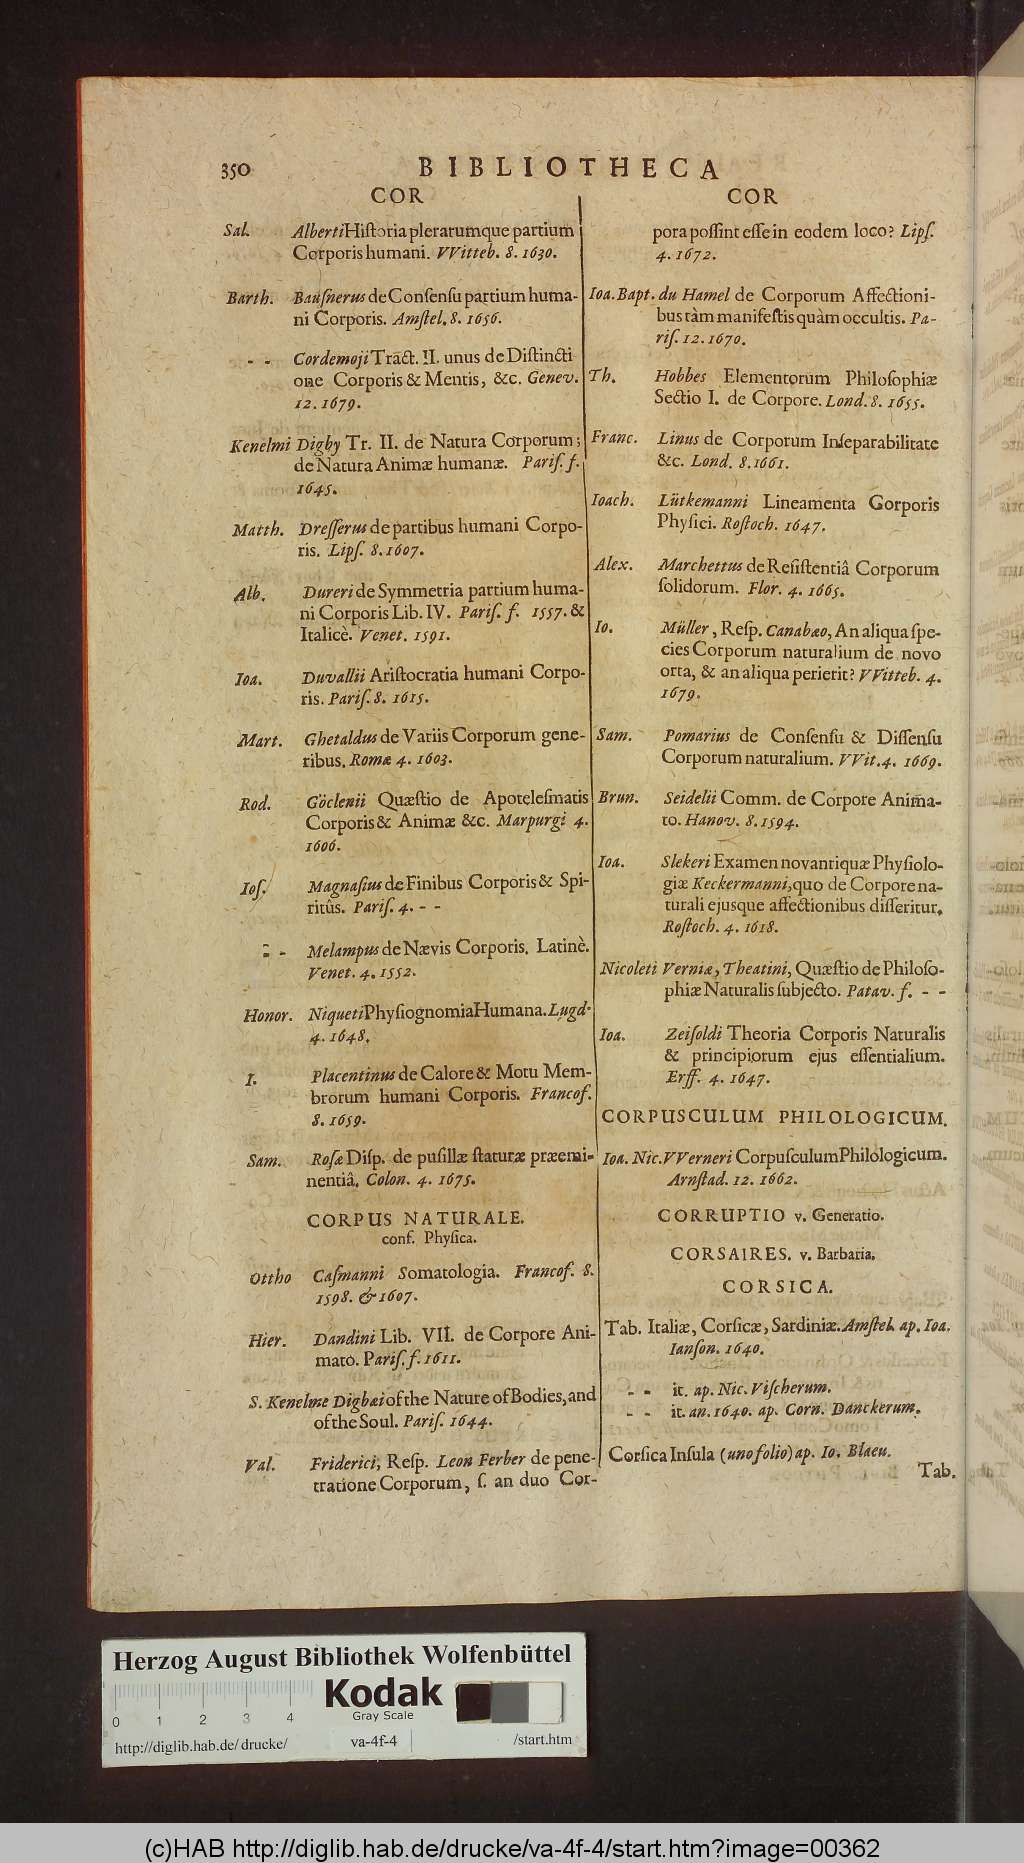 350 BIBLIOTHECA
COR
Sal. Alberti Hiſtoria plerarumque partium
Corporis humani. VVitteb. 8. 1630.
Barth. Bauſnerus de Conſenſu partium huma-
ni Corporis. Amſtel. 8. 1656.
- - Cordemoji Tract. II. unus de Diſtincti
one Corporis & Mentis, &c. Genev.
12. 1679.
Kenelmi Digby Tr. II. de Natura Corporum;
de Natura Animæ humanæ. Pariſ. f.
1645.
Matth. Dreſſerus de partibus humani Corpo-
ris. Lipſ. 8. 1607.
Alb. Dureri de Symmetria partium huma-
ni Corporis Lib. IV. Pariſ. f. 1557. &
Italicè. Venet. 1591.
Ioa. Duvallii Ariſtocratia humani Corpo-
ris. Pariſ. 8. 1615.
Mart. Ghetaldus de Variis Corporum gene-
ribus. Romæ 4. 1603.
Rod. Göclenii Quæſtio de Apoteleſmatis
Corporis & Animæ &c. Marpurgi 4.
1606.
Ioſ. Magnaſius de Finibus Corporis & Spi-
ritûs. Pariſ. 4. - -
- - Melampus de Nævis Corporis. Latinè.
Venet. 4. 1552.
Honor. Niqueti Phyſiognomia Humana. Lugd.
4. 1648.
I. Placentinus de Calore & Motu Mem-
brorum humani Corporis. Francof.
8. 1659.
Sam. Roſæ Diſp. de puſillæ ſtaturæ præemi-
nentiâ. Colon. 4. 1675.
CORPUS NATURALE.
conf. Phyſica.
Ottho Caſmanni Somatologia. Francof. 8.
1598. & 1607.
Hier. Dandini Lib. VII. de Corpore Ani-
mato. Pariſ. f. 1611.
S. Kenelme Digbæi of the Nature of Bodies, and
of the Soul. Pariſ. 1644.
Val. Friderici, Reſp. Leon Ferber de pene-
tratione Corporum, ſ. an duo Cor-
COR
pora poſſint eſſe in eodem loco? Lipſ.
4. 1672.
Ioa. Bapt. du Hamel de Corporum Affectioni-
bus tàm manifeſtis quàm occultis. Pa-
riſ. 12. 1670.
Th. Hobbes Elementorum Philoſophiæ
Sectio I. de Corpore. Lond. 8. 1655.
Franc. Linus de Corporum Inſeparabilitate
&c. Lond. 8. 1661.
Ioach. Lütkemanni Lineamenta Gorporis
Phyſici. Roſtoch. 1647.
Alex. Marchettus de Reſiſtentiâ Corporum
ſolidorum. Flor. 4. 1665.
Io. Müller, Reſp. Canabæo, An aliqua ſpe-
cies Corporum naturalium de novo
orta, & an aliqua perierit? VVitteb. 4.
1679.
Sam. Pomarius de Conſenſu & Diſſenſu
Corporum naturalium. VVit. 4. 1669.
Brun. Seidelii Comm. de Corpore Anima-
to. Hanov. 8. 1594.
Ioa. Slekeri Examen novantiquæ Phyſiolo-
giæ Keckermanni, quo de Corpore na-
turali ejusque affectionibus diſſeritur.
Roſtoch. 4. 1618.
Nicoleti Verniæ, Theatini, Quæſtio de Philoſo-
phiæ Naturalis ſubjecto. Patav. f. - -
Ioa. Zeiſoldi Theoria Corporis Naturalis
& principiorum ejus eſſentialium.
Erff. 4. 1647.
CORPUSCULUM PHILOLOGICUM.
Ioa. Nic. VVerneri Corpuſculum Philologicum.
Arnſtad. 12. 1662.
CORRUPTIO v. Generatio.
CORSAIRES. v. Barbaria.
CORSICA.
Tab. Italiæ, Corſicæ, Sardiniæ. Amſtel. ap. Ioa.
Ianſon. 1640.
- - it. ap. Nic. Viſcherum.
- - it. an. 1640. ap. Corn. Danckerum.
Corſica Inſula (uno folio) ap. Io. Blaeu.
Tab.
Herzog August Bibliothek Wolfenbüttel
Kodak
Gray Scale
0 1 2 3 4
http://diglib.hab.de/drucke/ va-4f-4 /start.htm
(c)HAB http://diglib.hab.de/drucke/va-4f-4/start.htm?image=00362